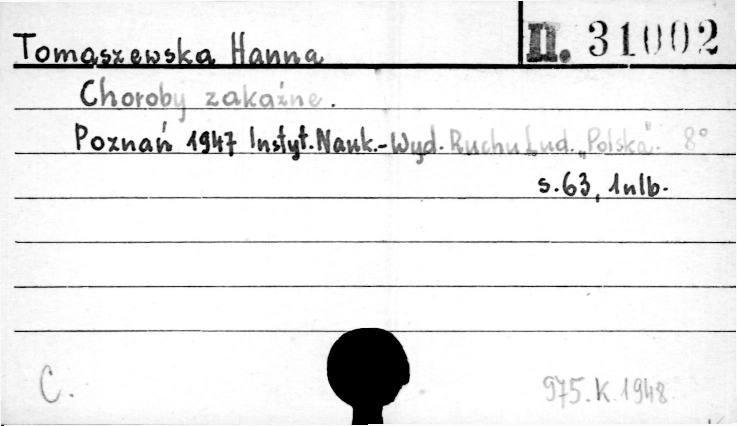 Tomaszewska Hanna
II. 31002
Choroby zakaźne.
Poznań 1947 Instyt. Nauk.-Wyd. Ruchu Lud. „Polska". 8°
s. 63, 1 nlb.
C.
975.K.1948